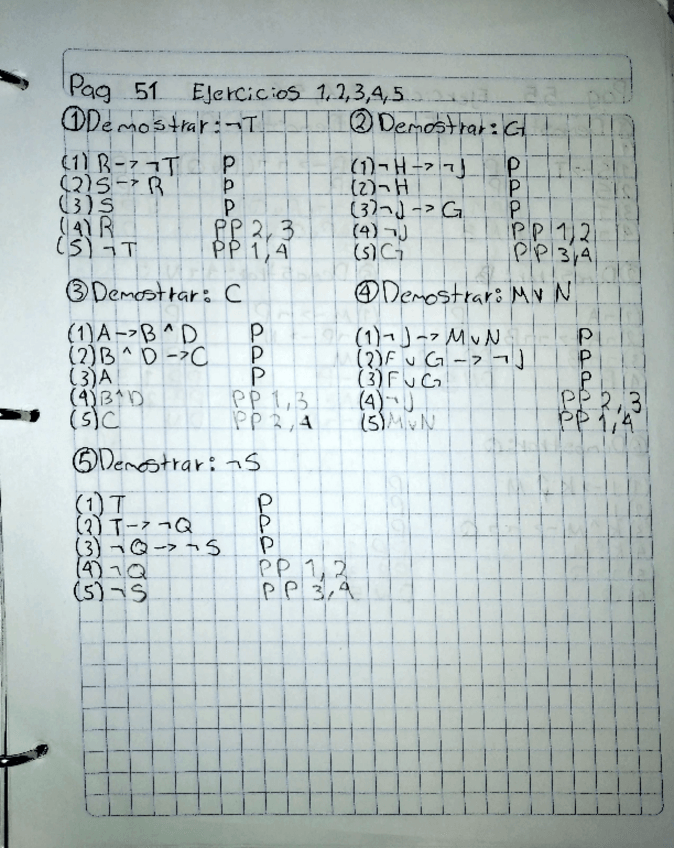 Pag 51 Ejercicios 1,2,3,4,5
①Demostrar:¬T
(1) R->¬T P
(2) S->R P
(3) S P
(4) R PP 2,3
(5) ¬T PP 1,4
② Demostrar: G
(1)¬H->¬J P
(2)¬H P
(3)¬J->G P
(4)¬J PP 1,2
(5)G PP 3,4
③Demostrar: C
(1)A->B^D P
(2)B^D->C P
(3)A P
(4)B^D PP 1,3
(5)C PP 2,4
④Demostrar: M∨N
(1)¬J->M∨N P
(2)F∨G->¬J P
(3)F∨G P
(4)¬J PP 2,3
(5)M∨N PP 1,4
⑤Demostrar: ¬S
(1) T P
(2) T->¬Q P
(3) ¬Q->¬S P
(4) ¬Q PP 1,2
(5) ¬S PP 3,4